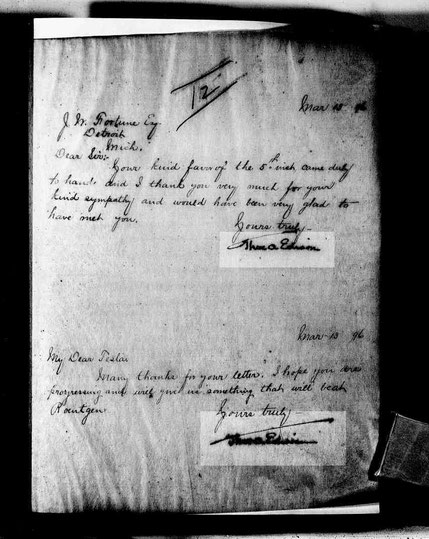 12
Mar 13 96
J. W. Fortune Esq
Detroit
Mich.
Dear Sir:-
Your kind favor of the 5th inst came duly
to hand and I thank you very much for your
kind sympathy and would have been very glad to
have met you.
Yours truly
Thos A Edison
Mar 13 96
My Dear Tesla
Many thanks for your letter. I hope you are
progressing and will give us something that will beat
Roentgen
Yours truly
Thos A Edison